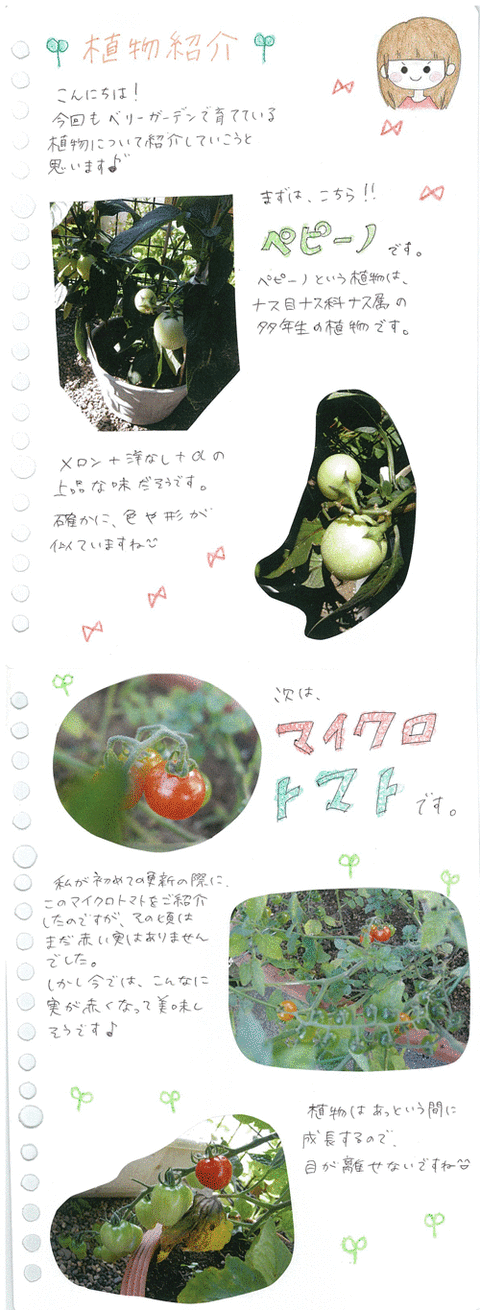 植物紹介
こんにちは!
今回もベリーガーデンで育てている
植物について紹介していこうと
思います♪
まずは、こちら!!
ペピーノ です。
ペピーノという植物は、
ナス目ナス科ナス属の
多年生の植物です。
メロン+洋なし+αの
上品な味だそうです。
確かに、色や形が
似ていますね
次は、
マイクロ
トマト です。
私が初めての更新の際に、
このマイクロトマトをご紹介
したのですが、その頃は
まだ赤い実はありません
でした。
しかし今では、こんなに
実が赤くなって美味し
そうです♪
植物はあっという間に
成長するので、
目が離せないですね